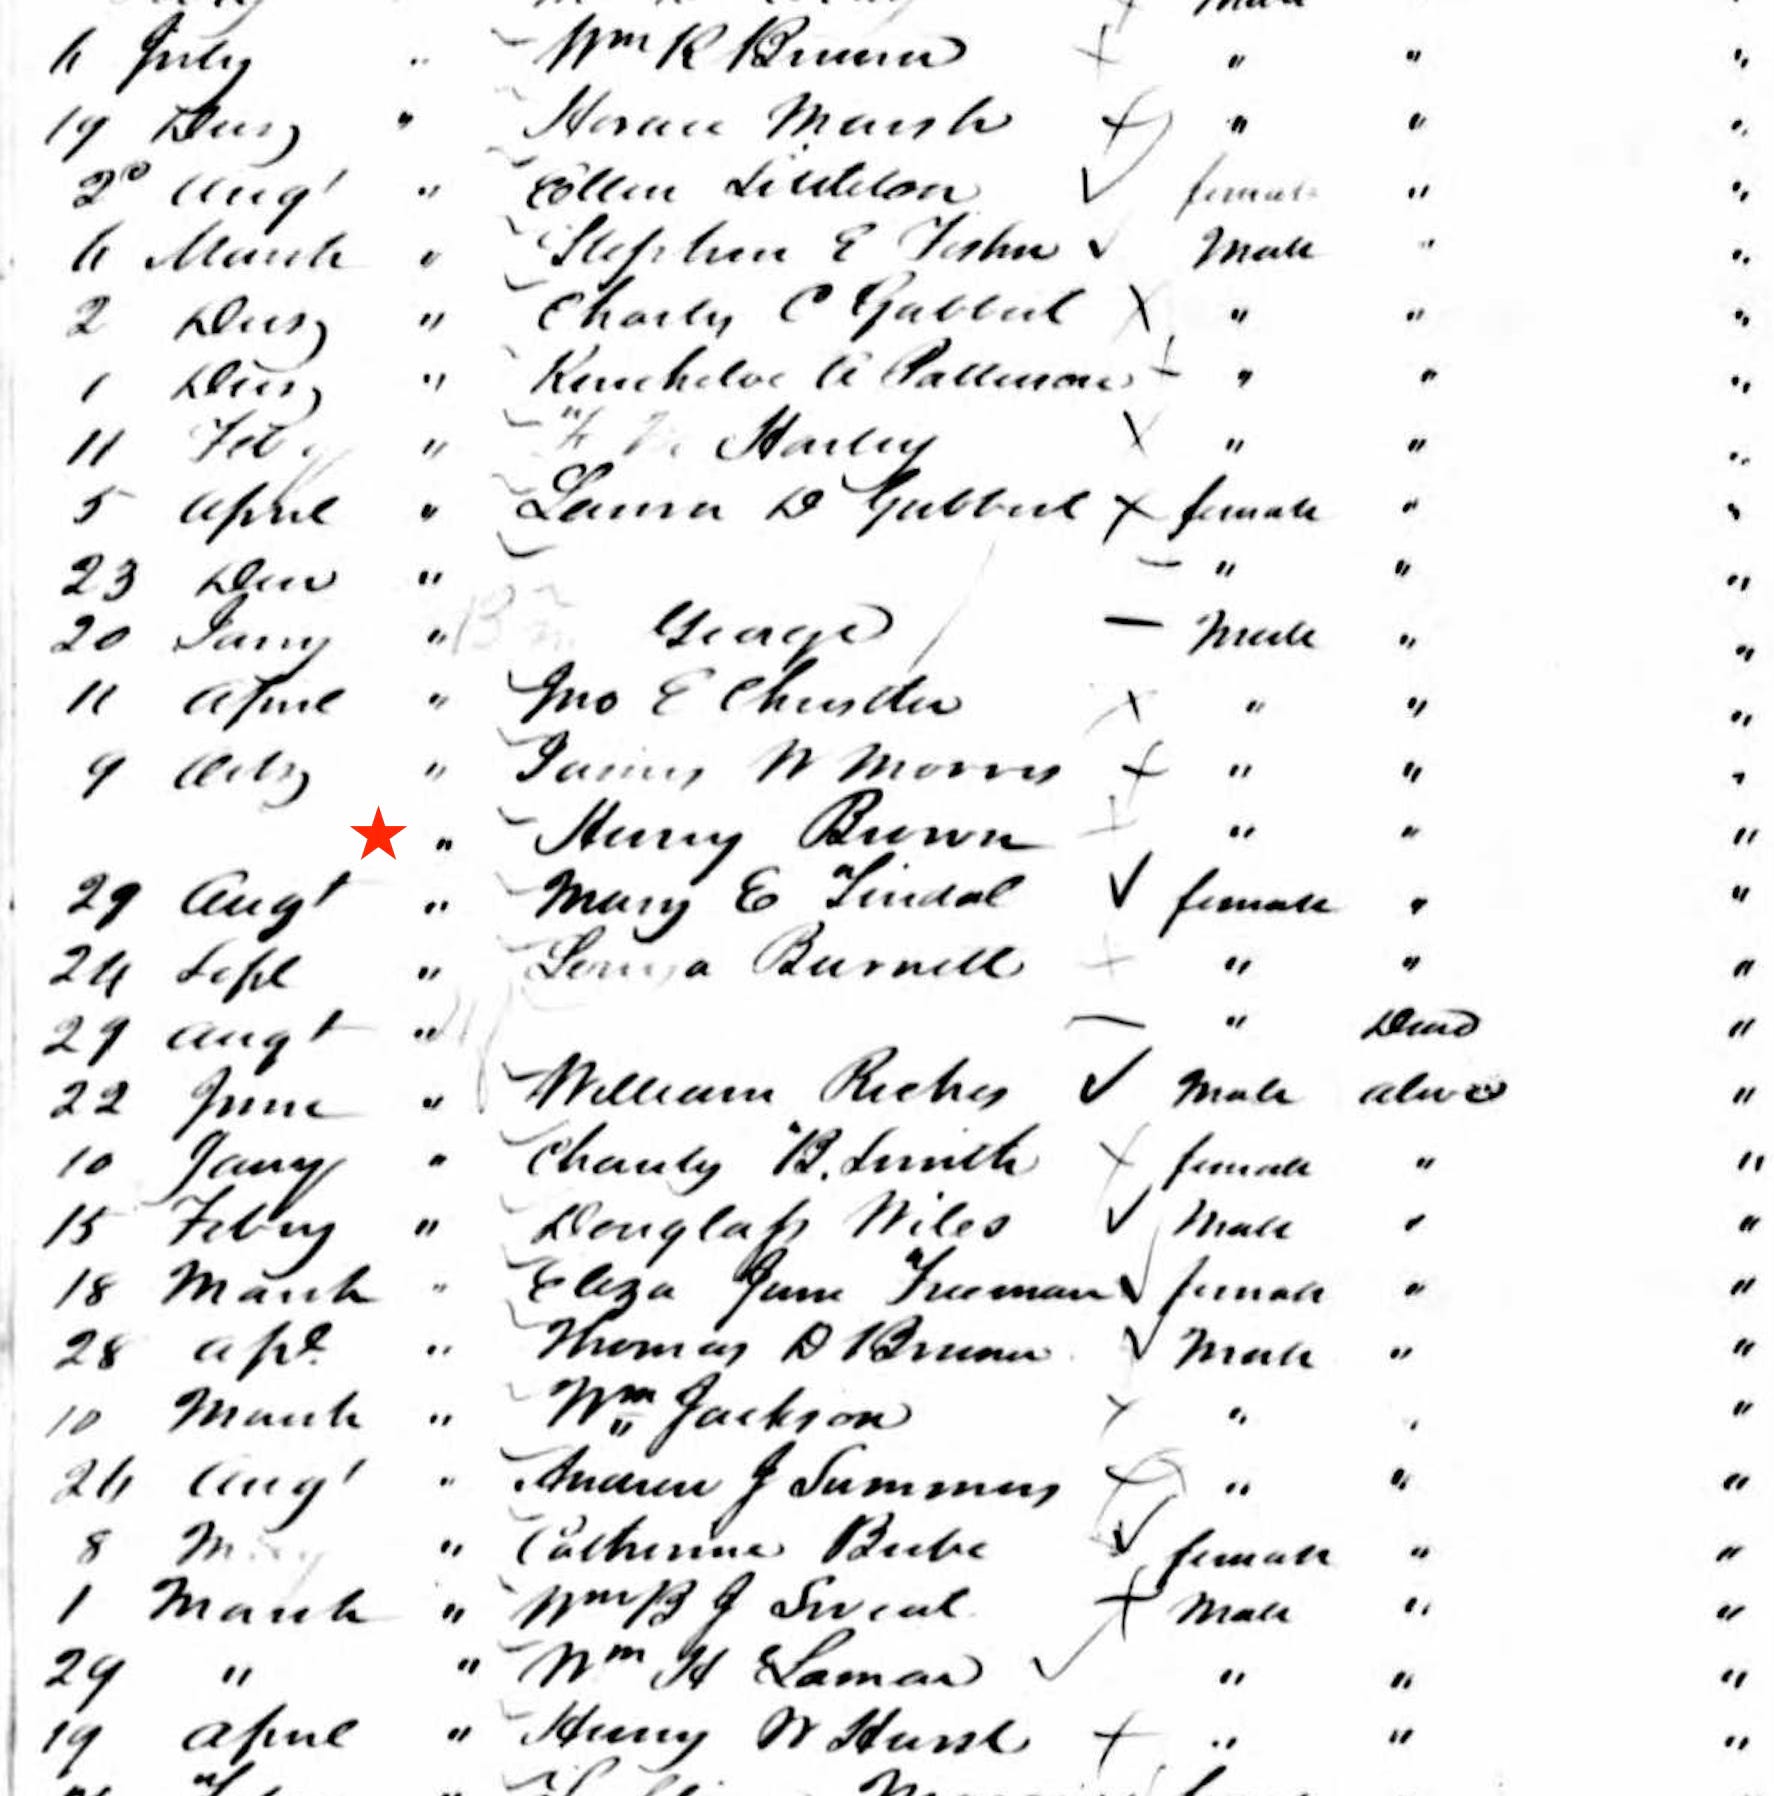 6 July " Wm R Bruner X " " "
19 Decr " Horace Marsh X " " "
20 Augt " Ellen Littleton ✓ female " "
6 March " Stephen E Fisher ✓ Male " "
2 Decr " Charley C Gabbert X " " "
1 Decr " Kincheloe A Patterson + " " "
11 Feby " Harley X " " "
5 April " Laura D Gabbert X female " "
23 Decr " — " " "
20 Jany " George — Male " "
11 April " Jno E X " " "
9 Octr " James W Morris X " " "
" Henry Brown + " " "
29 Augt " Mary E Tindal ✓ female " "
24 Sept " Louisa Burnett + " " "
29 Augt " — " Dead "
22 June " William Riches ✓ Male alive "
10 Jany " Charity B. Smith X female " "
15 Febry " Douglass Wiles ✓ Male " "
18 March " Eliza Jane Freeman ✓ female " "
28 Apl " Thomas D Bruner ✓ Male " "
10 March " Wm Jackson X " " "
26 Augt " Andrew J Summers X " " "
8 " Catherine Beebe ✓ female " "
1 March " Wm B J Sweat X Male " "
29 " " Wm H Lamar ✓ " " "
19 April " Henry W Hurst X " " "